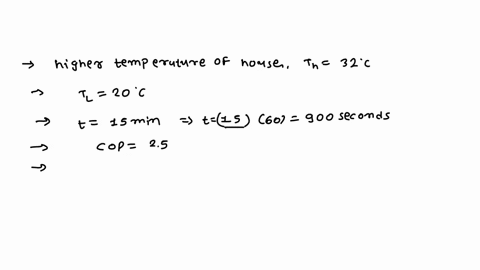 → higher temperature of house, Th = 32°c
→ TL = 20°c
→ t = 15 min ⇒ t = (15) (60) = 900 seconds
→ COP = 2.5
→